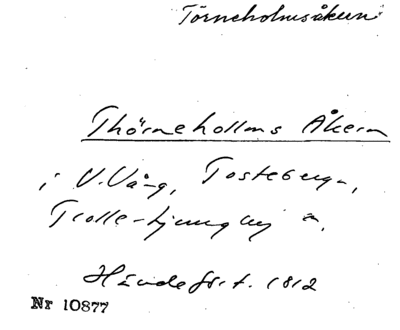 Törneholmsåkern
Thörnehollms Åkern
i V. Vång, Tosteberga,
Trolle-Ljungby s.
Händfört. 1812
Nr 10877